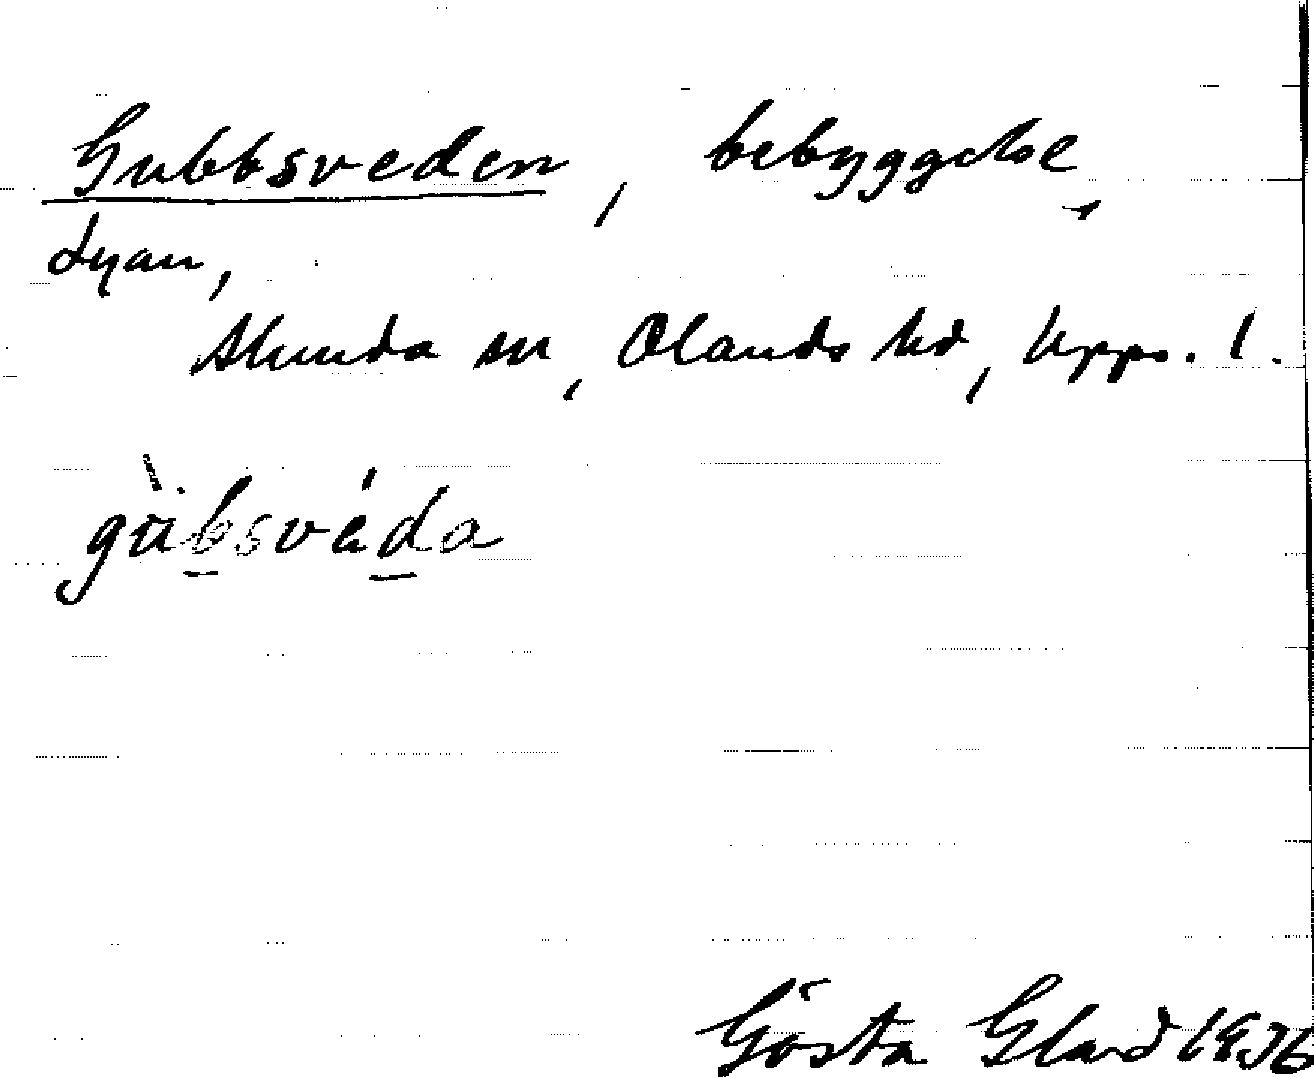 Gubbsveden, bebyggelse,
Lyan,
Alunda sn, Olands hd, Upps. l.
gùbsvéda
Gösta Glad 1936